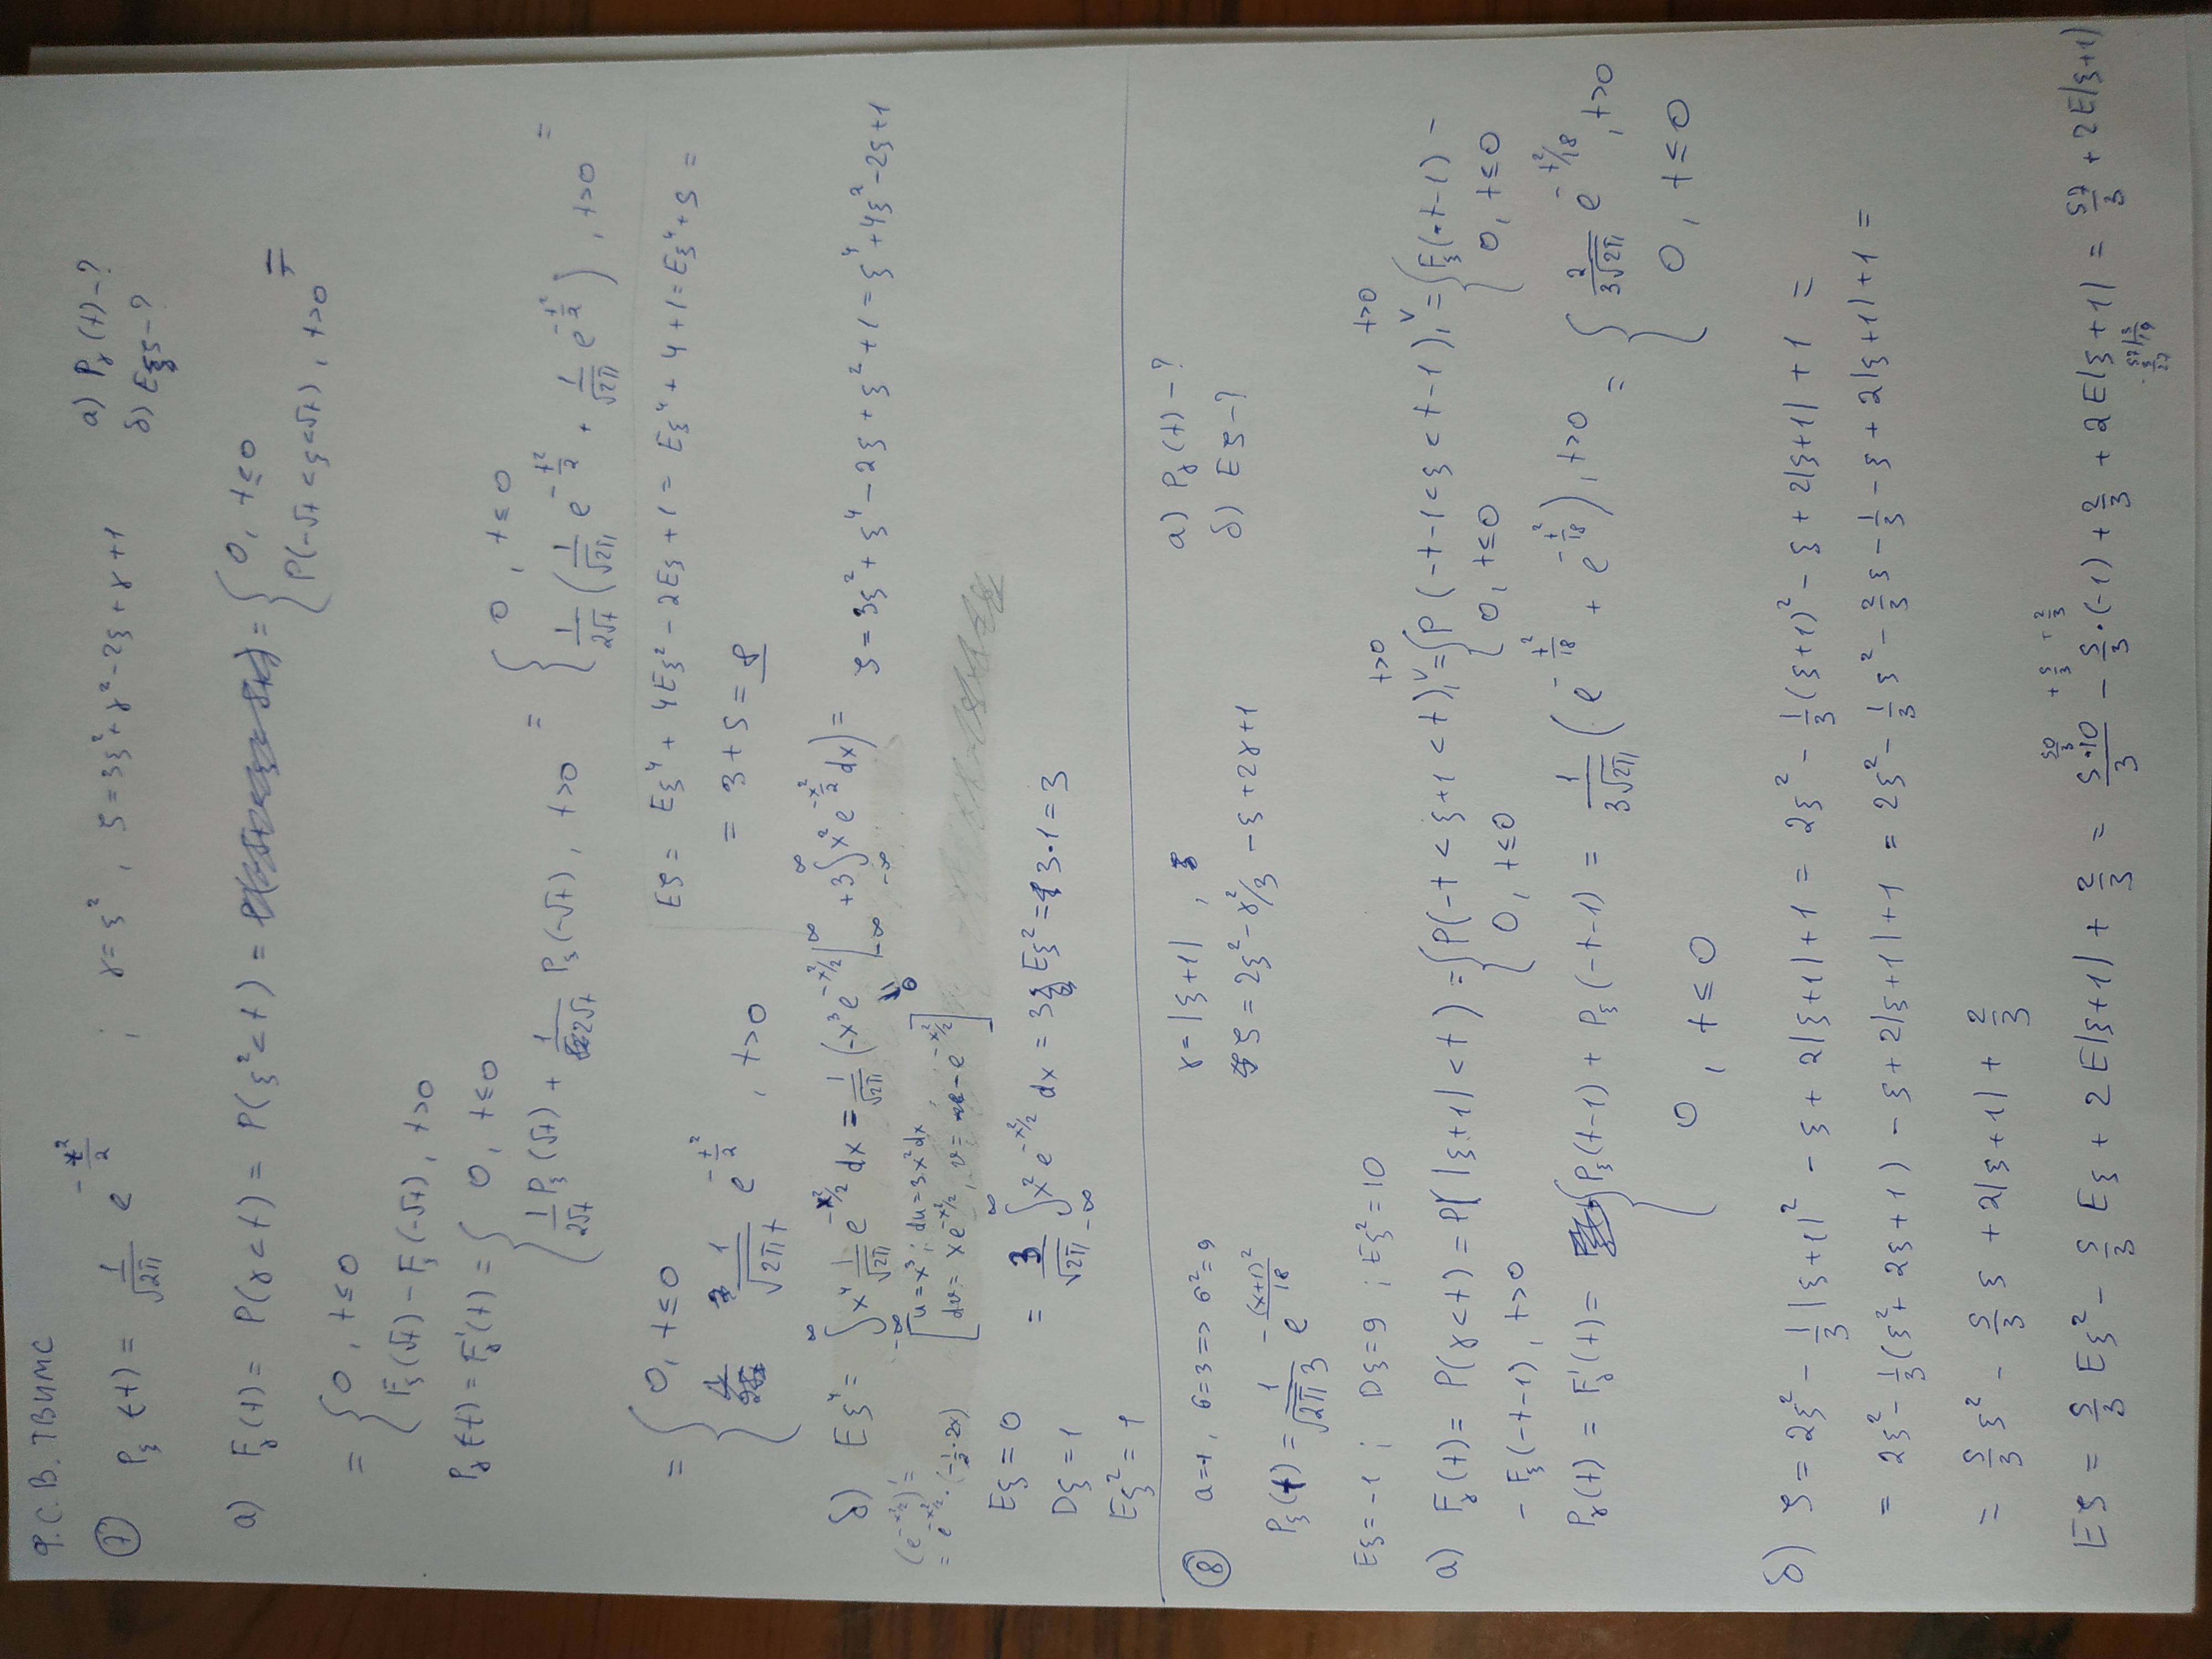 Ф.С.В. ТВИМС
⑦ P_ξ(t) = 1/√(2π) e^(-t²/2) ; γ = ξ², ζ = 3ξ² + γ² - 2ξ + γ + 1 а) P_γ(t) - ?
б) Eζ - ?
а) F_γ(t) = P(γ < t) = P(ξ² < t) = = { 0, t ≤ 0 ; P(-√t < ξ < √t), t > 0 =
= { 0, t ≤ 0 ; F_ξ(√t) - F_ξ(-√t), t > 0
P_γ(t) = F'_γ(t) = { 0, t ≤ 0 ; 1/(2√t) P_ξ(√t) + 1/(2√t) P_ξ(-√t), t > 0 = { 0, t ≤ 0 ; 1/(2√t) (1/√(2π) e^(-t²/2) + 1/√(2π) e^(-t²/2)), t > 0 =
= { 0, t ≤ 0 ; 1/√(2πt) e^(-t²/2), t > 0
Eζ = Eξ⁴ + 4Eξ² - 2Eξ + 1 = Eξ⁴ + 4 + 1 = Eξ⁴ + 5 =
= 3 + 5 = 8
б) Eξ⁴ = ∫_{-∞}^{∞} x⁴ 1/√(2π) e^(-x²/2) dx = 1/√(2π) (-x³ e^(-x²/2) |_{-∞}^{∞} + 3 ∫_{-∞}^{∞} x² e^(-x²/2) dx) =
ζ = 3ξ² + ξ⁴ - 2ξ + ξ² + 1 = ξ⁴ + 4ξ² - 2ξ + 1
(e^(-x²/2))' =
= e^(-x²/2) · (-1/2 · 2x)
[ u = x³; du = 3x² dx
dv = x e^(-x²/2), v = - e^(-x²/2) ]
0
Eξ = 0
= 3/√(2π) ∫_{-∞}^{∞} x² e^(-x²/2) dx = 3 Eξ² = 3·1 = 3
Dξ = 1
Eξ² = 1
⑧ a = -1, σ = 3 => σ² = 9 γ = |ξ+1|, а) P_γ(t) - ?
ζ = 2ξ² - γ²/3 - ξ + 2γ + 1 б) Eζ - ?
P_ξ(t) = 1/(√(2π) 3) e^(-(x+1)²/18)
Eξ = -1 ; Dξ = 9 ; Eξ² = 10
а) F_γ(t) = P(γ < t) = P(|ξ+1| < t) = { P(-t < ξ+1 < t), t>0 ; 0, t ≤ 0 = { P(-t-1 < ξ < t-1), t>0 ; 0, t ≤ 0 = { F_ξ(t-1) -
- F_ξ(-t-1), t > 0 ; 0, t ≤ 0
P_γ(t) = F'_γ(t) = { P_ξ(t-1) + P_ξ(-t-1) = 1/(3√(2π)) (e^(-t²/18) + e^(-t²/18)), t > 0 ; 0, t ≤ 0 = { 2/(3√(2π)) e^(-t²/18), t > 0 ; 0, t ≤ 0
б) ζ = 2ξ² - 1/3 |ξ+1|² - ξ + 2|ξ+1| + 1 = 2ξ² - 1/3 (ξ+1)² - ξ + 2|ξ+1| + 1 =
= 2ξ² - 1/3 (ξ² + 2ξ + 1) - ξ + 2|ξ+1| + 1 = 2ξ² - 1/3 ξ² - 2/3 ξ - 1/3 - ξ + 2|ξ+1| + 1 =
= 5/3 ξ² - 5/3 ξ + 2|ξ+1| + 2/3
50/3 + 5/3 + 2/3
Eζ = 5/3 Eξ² - 5/3 Eξ + 2E|ξ+1| + 2/3 = 5·10/3 - 5/3 · (-1) + 2/3 + 2E|ξ+1| = 57/3 + 2E|ξ+1|